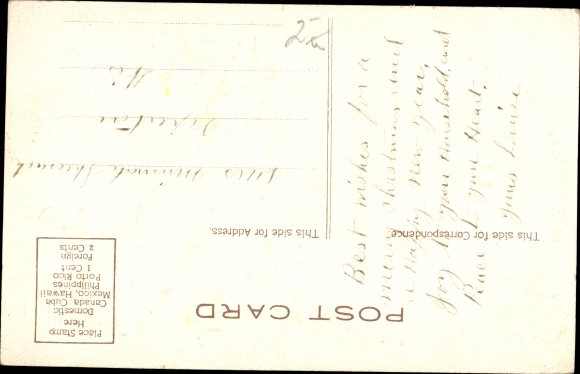 POST CARD
Place Stamp
Here
Domestic
Canada Cuba
Mexico, Hawaii
Philippines
Porto Rico
1 Cent
Foreign
2 Cents
This side for Correspondence.
This side for Address.
Best wishes for a
merry Christmas and
a Happy New Year.
Joy to your Household, and
Peace to your Heart.
yours Louise
Mrs Minnie
Wis